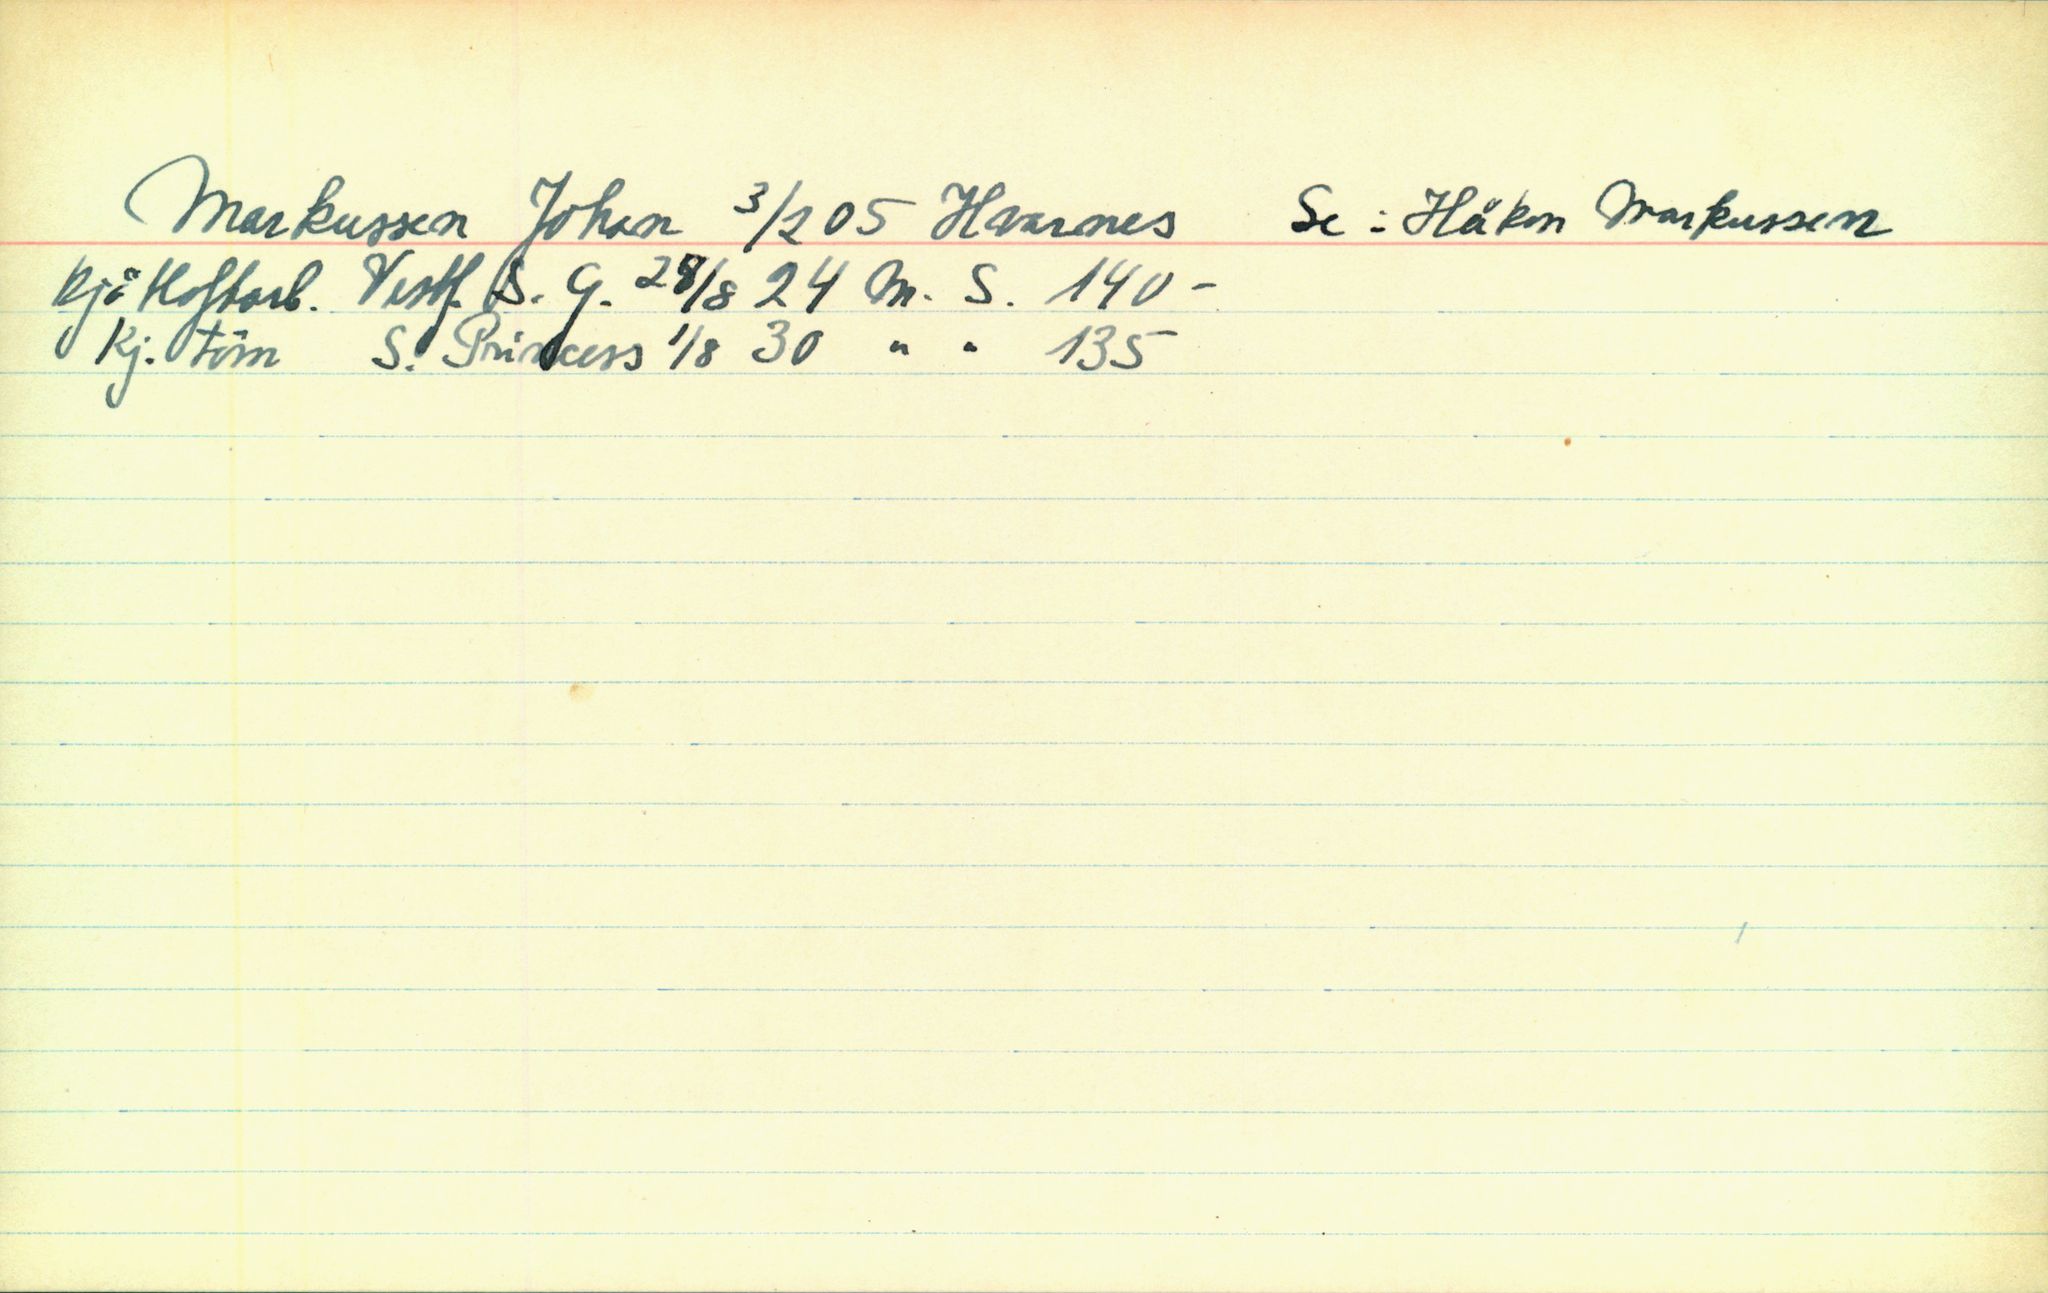 Markussen Johan 3/2 05 Hvarnes Se: Håkon Markussen
Vestf. S. G. 28/8 24 M. S. 140-
Kj. töm S. Princess 1/8 30 " " 135